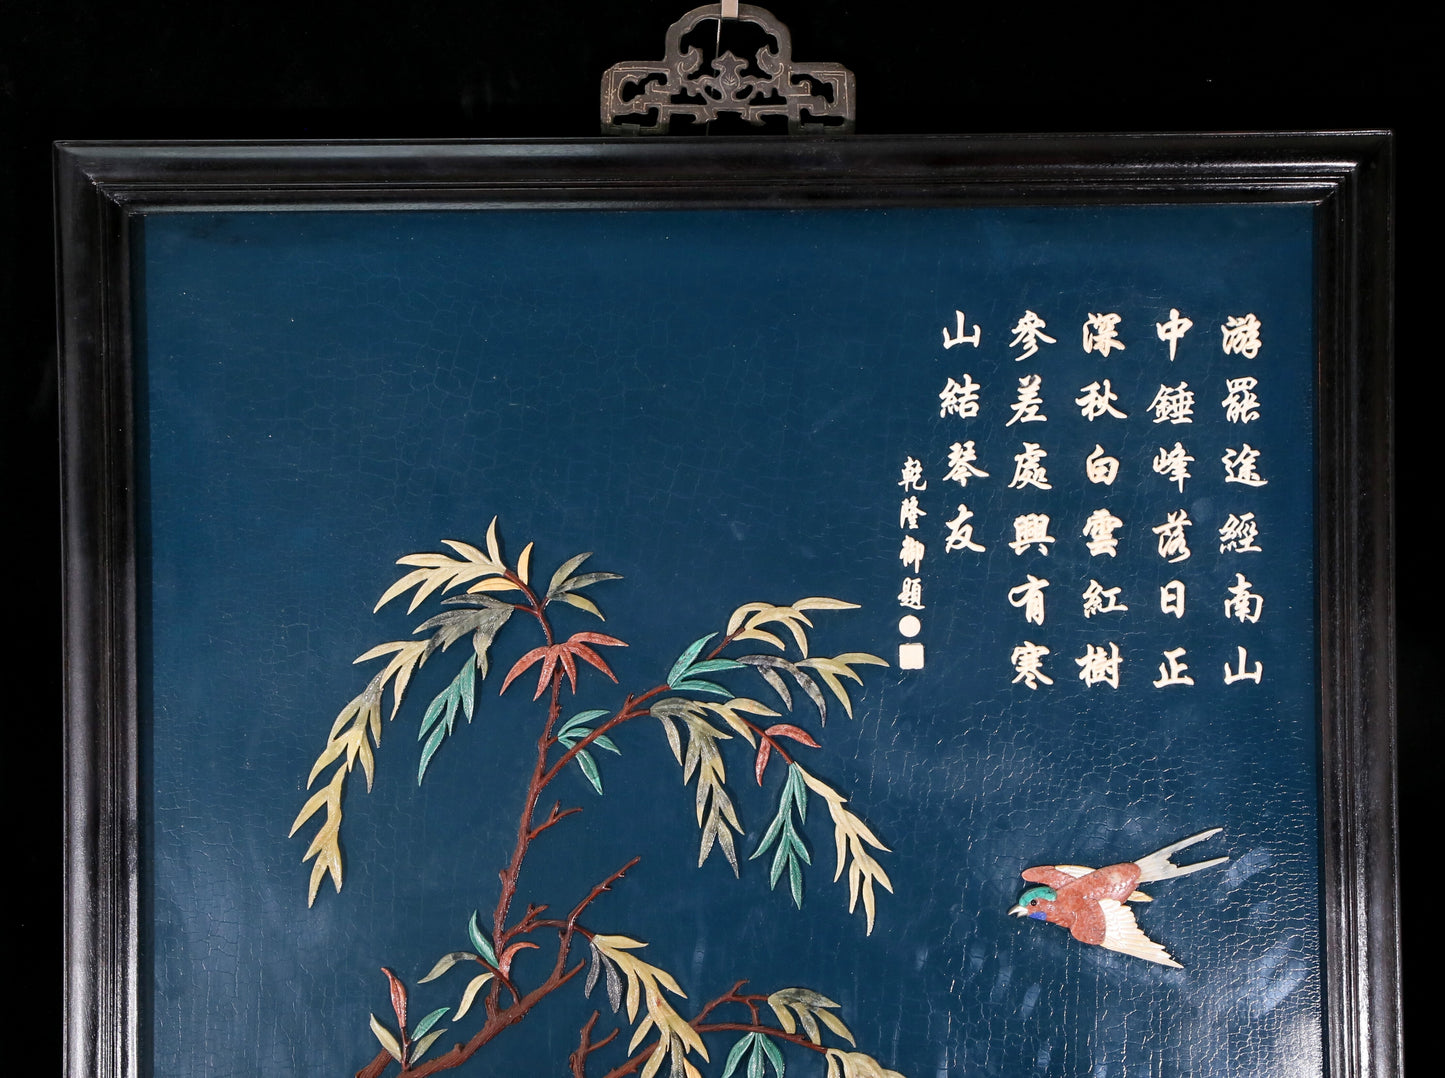 游罷途經南山
中錘峰落日正
深秋白雲紅樹
參差處興有寒
山結琴友
乾隆御題